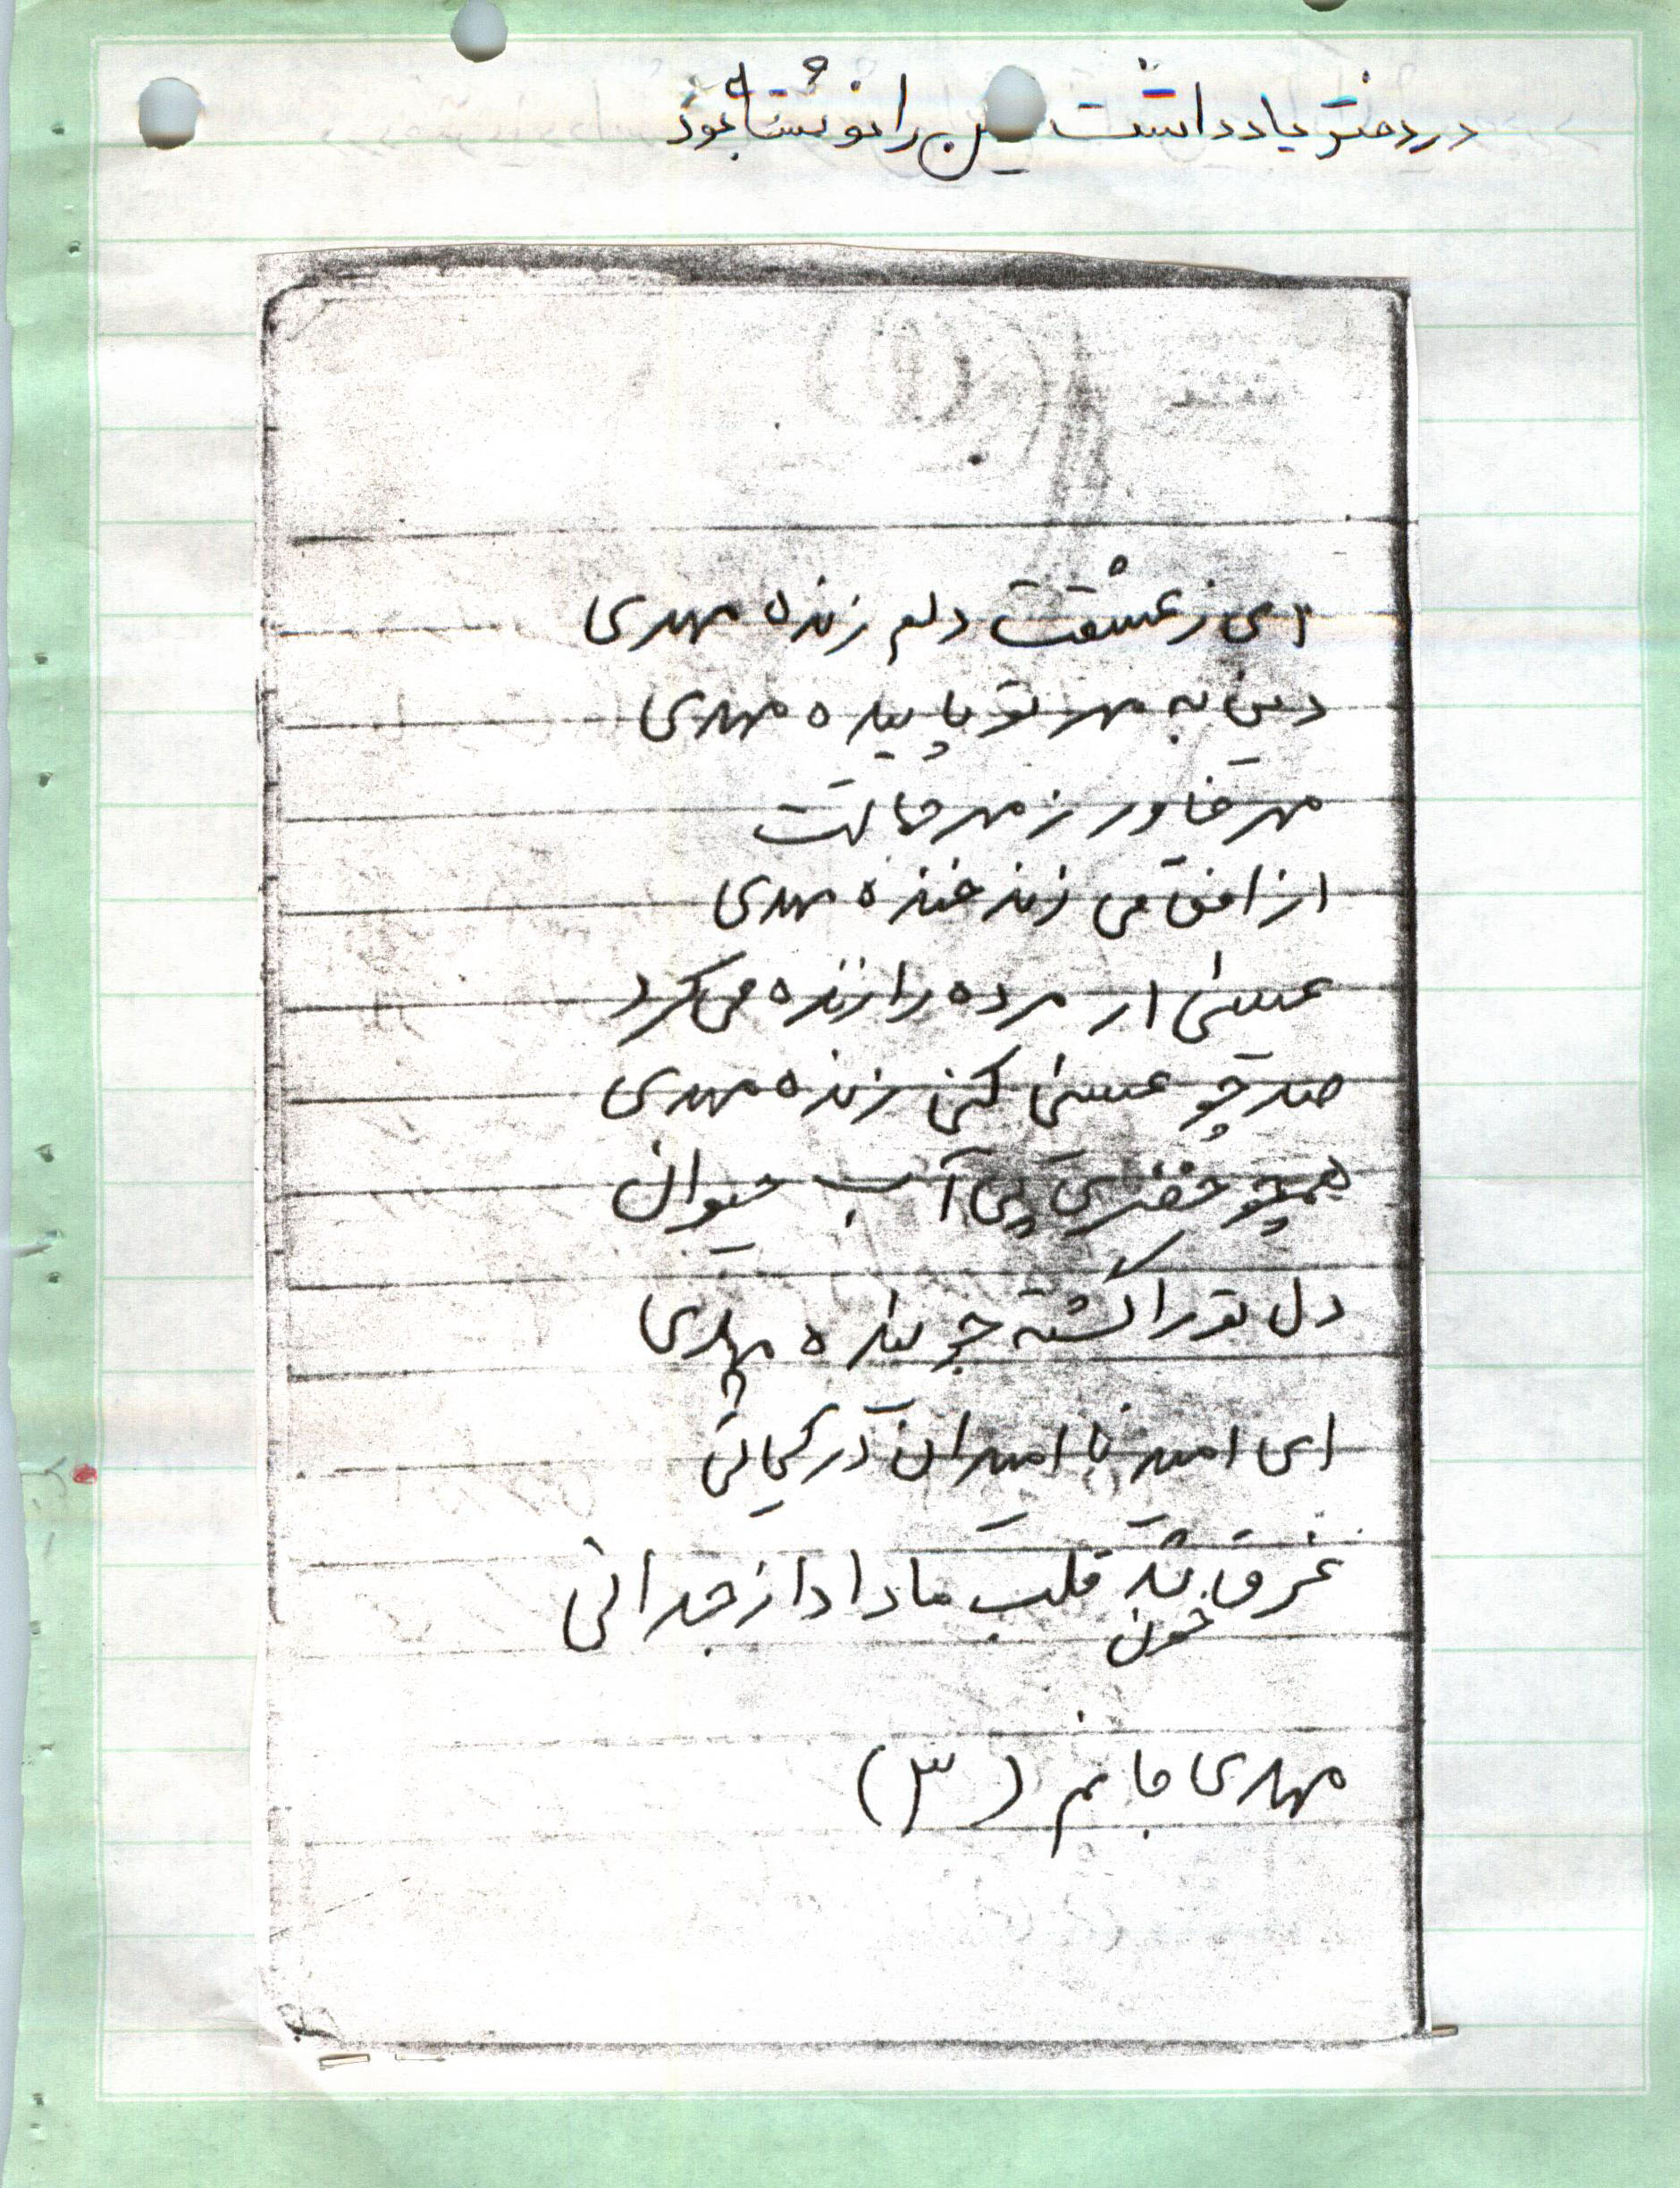 در دفتر یادداشت این را نوشته بود
ای ز عشقت دلم زنده مهدی
دین به مهر تو پاینده مهدی
مهر خاور ز مهر جمالت
از افق می زند خنده مهدی
عیسی ار مرده را زنده می کرد
صد چو عیسی کنی زنده مهدی
همچو خضری پی آب حیوان
دل تو را گشته جوینده مهدی
ای امید نا امیدان آخر کجائی
غرق خون شد قلب ما داد از جدائی
مهدی جانم (۳)